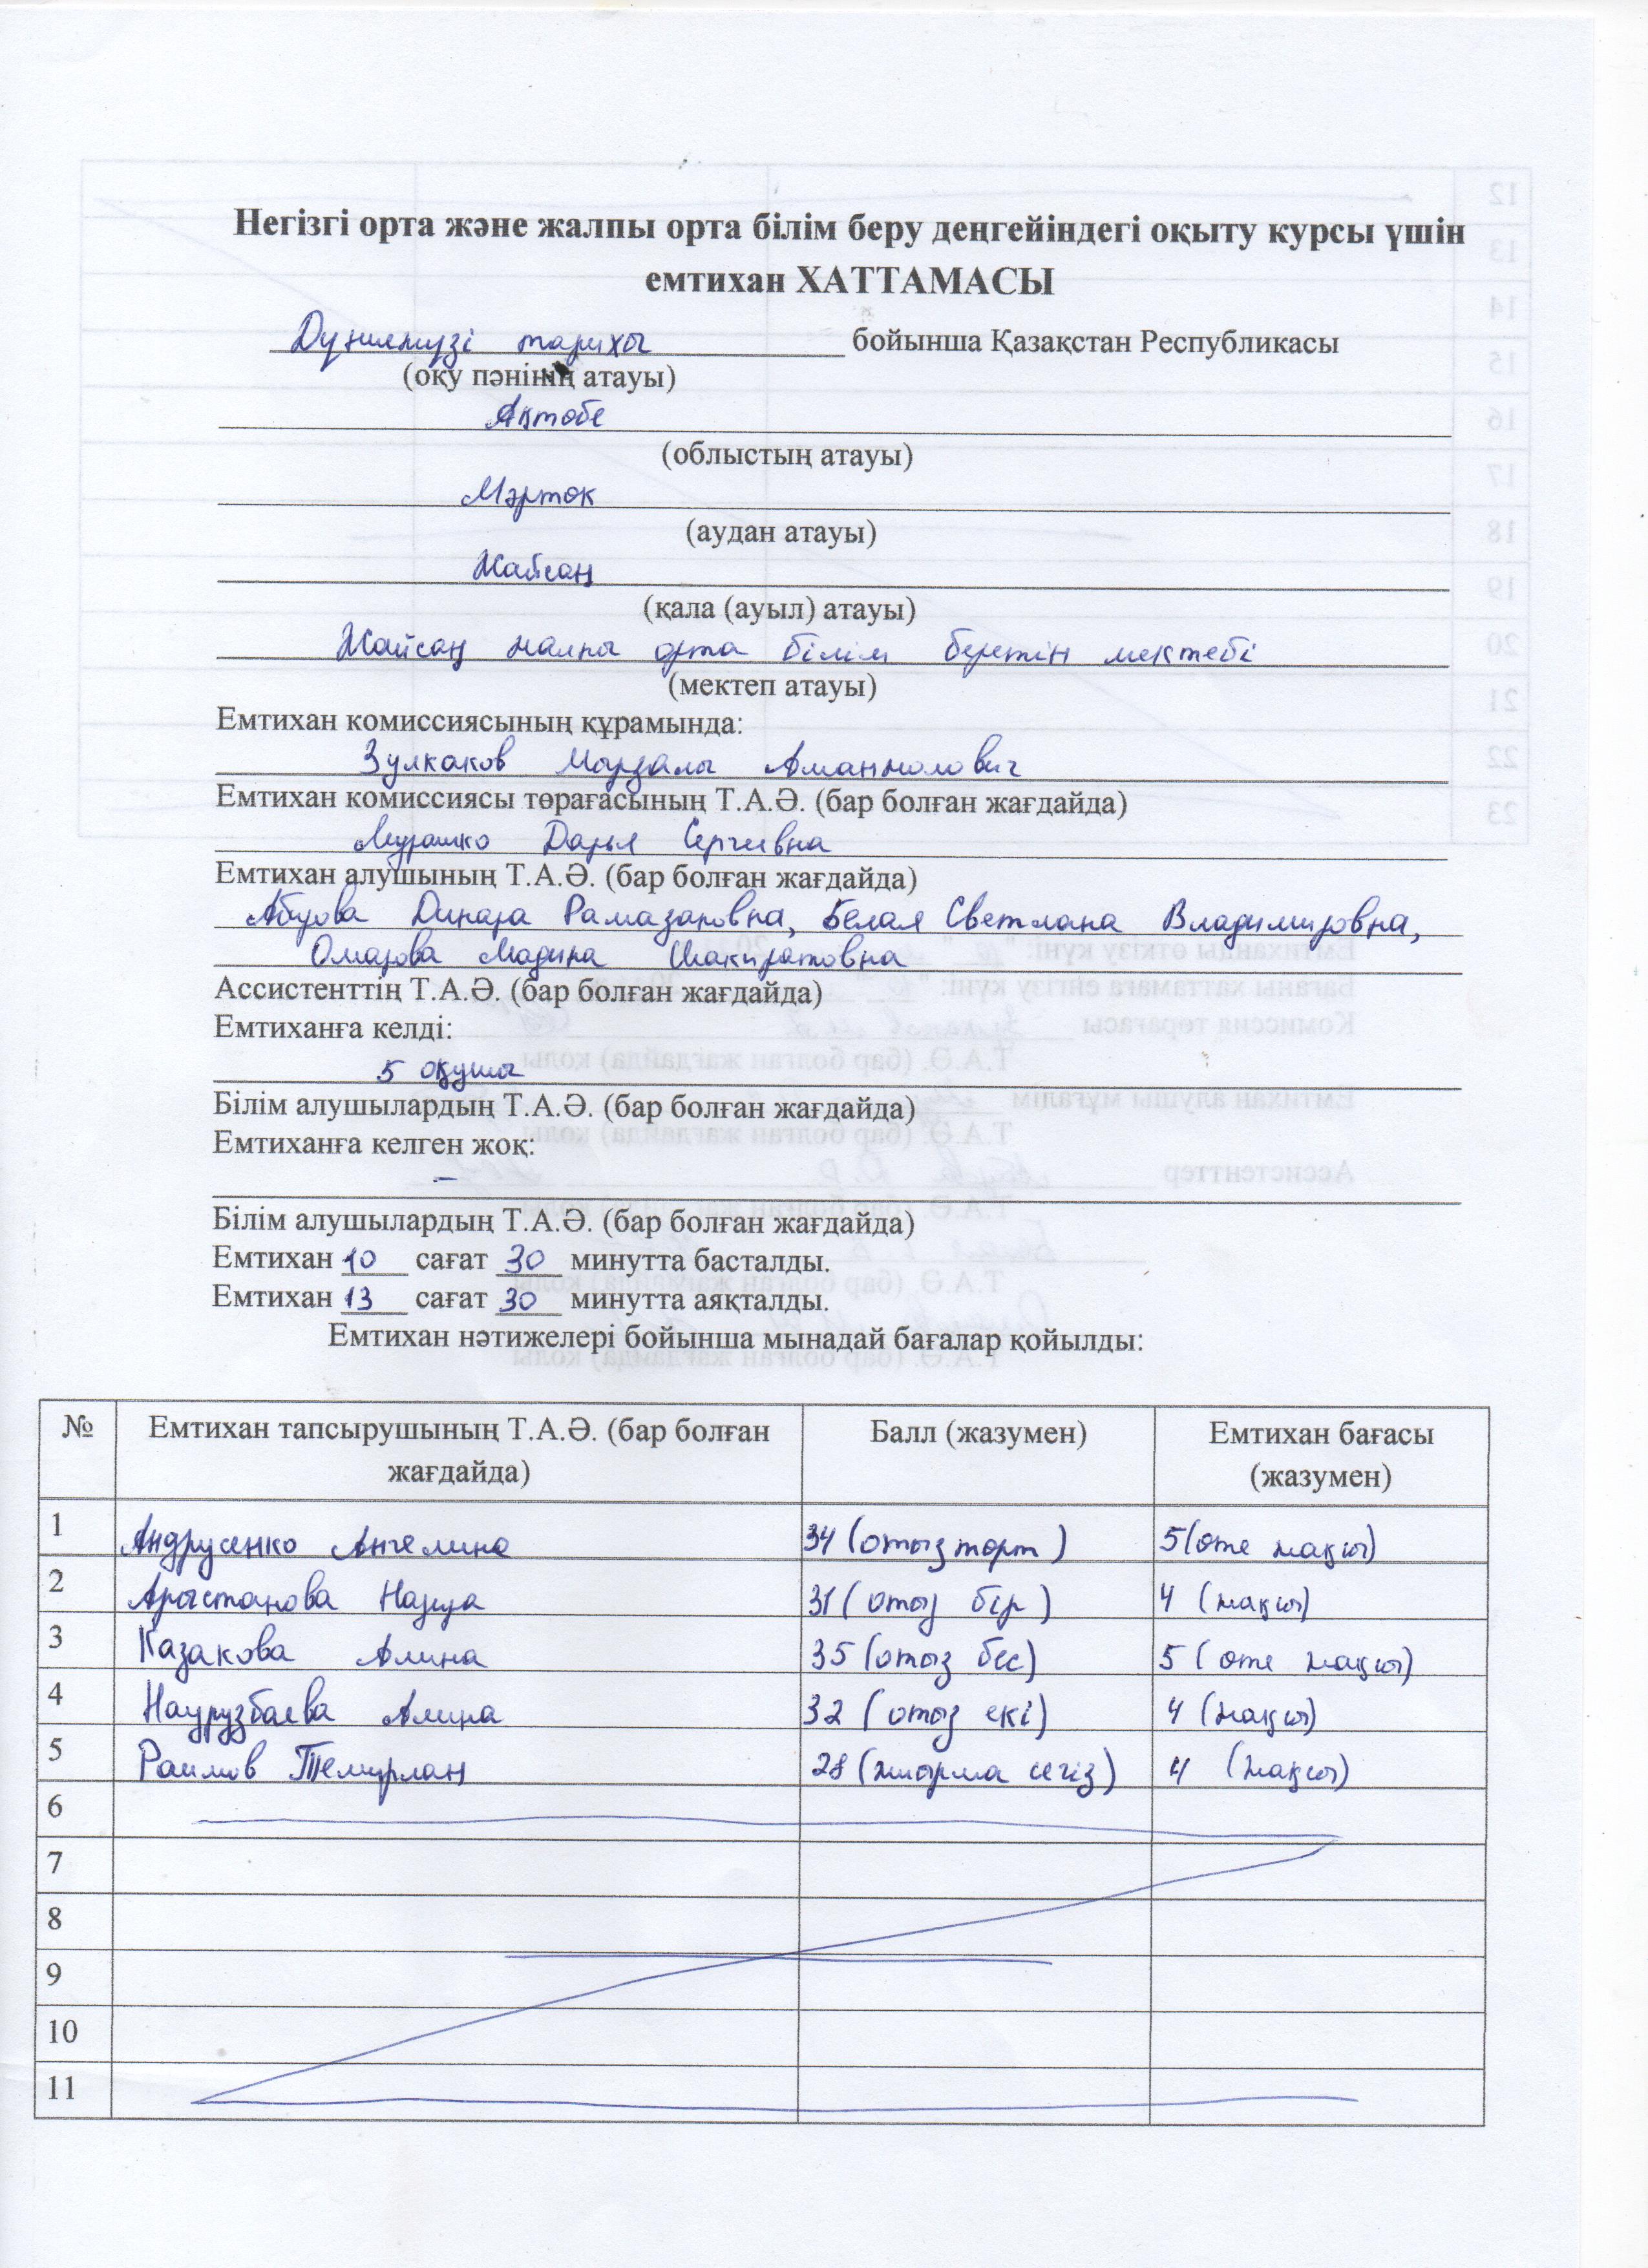 Негізгі орта және жалпы орта білім беру деңгейіндегі оқыту курсы үшін
емтихан ХАТТАМАСЫ
Дүниежүзі тарихы бойынша Қазақстан Республикасы
(оқу пәнінің атауы)
Ақтөбе
(облыстың атауы)
Мәртөк
(аудан атауы)
Жайсаң
(қала (ауыл) атауы)
Жайсаң жалпы орта білім беретін мектебі
(мектеп атауы)
Емтихан комиссиясының құрамында:
Зулкаков Мырзалы Аманжолович
Емтихан комиссиясы төрағасының Т.А.Ә. (бар болған жағдайда)
Мурашко Дарья Сергеевна
Емтихан алушының Т.А.Ә. (бар болған жағдайда)
Абуова Динара Рамазановна, Белая Светлана Владимировна,
Омарова Мадина Шакиратовна
Ассистенттің Т.А.Ә. (бар болған жағдайда)
Емтиханға келді:
5 оқушы
Білім алушылардың Т.А.Ә. (бар болған жағдайда)
Емтиханға келген жоқ:
–
Білім алушылардың Т.А.Ә. (бар болған жағдайда)
Емтихан 10 сағат 30 минутта басталды.
Емтихан 13 сағат 30 минутта аяқталды.
Емтихан нәтижелері бойынша мынадай бағалар қойылды:
№ Емтихан тапсырушының Т.А.Ә. (бар болған жағдайда) Балл (жазумен) Емтихан бағасы (жазумен)
1 Андрусенко Ангелина 34 (отыз төрт) 5 (өте жақсы)
2 Арыстанова 31 (отыз бір) 4 (жақсы)
3 Казакова Алина 35 (отыз бес) 5 (өте жақсы)
4 Наурузбаева Алина 32 (отыз екі) 4 (жақсы)
5 Раимов Темирлан 28 (жиырма сегіз) 4 (жақсы)
6
7
8
9
10
11